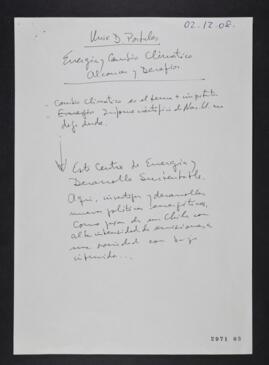 02.12.08.
Univ D. Portales
Energía y Cambio Climático
Alcances y Desafíos
- Cambio Climático es el tema + importante
- Energía. Informe científico de Nac. U. no
deja duda.
Este Centro de Energía y
Desarrollo Sustentable.
Aquí, investigar y desarrollar
nuevas políticas energéticas.
Como pasar de un Chile con
alta intensidad de emisiones, a
una sociedad con baja
2971 03